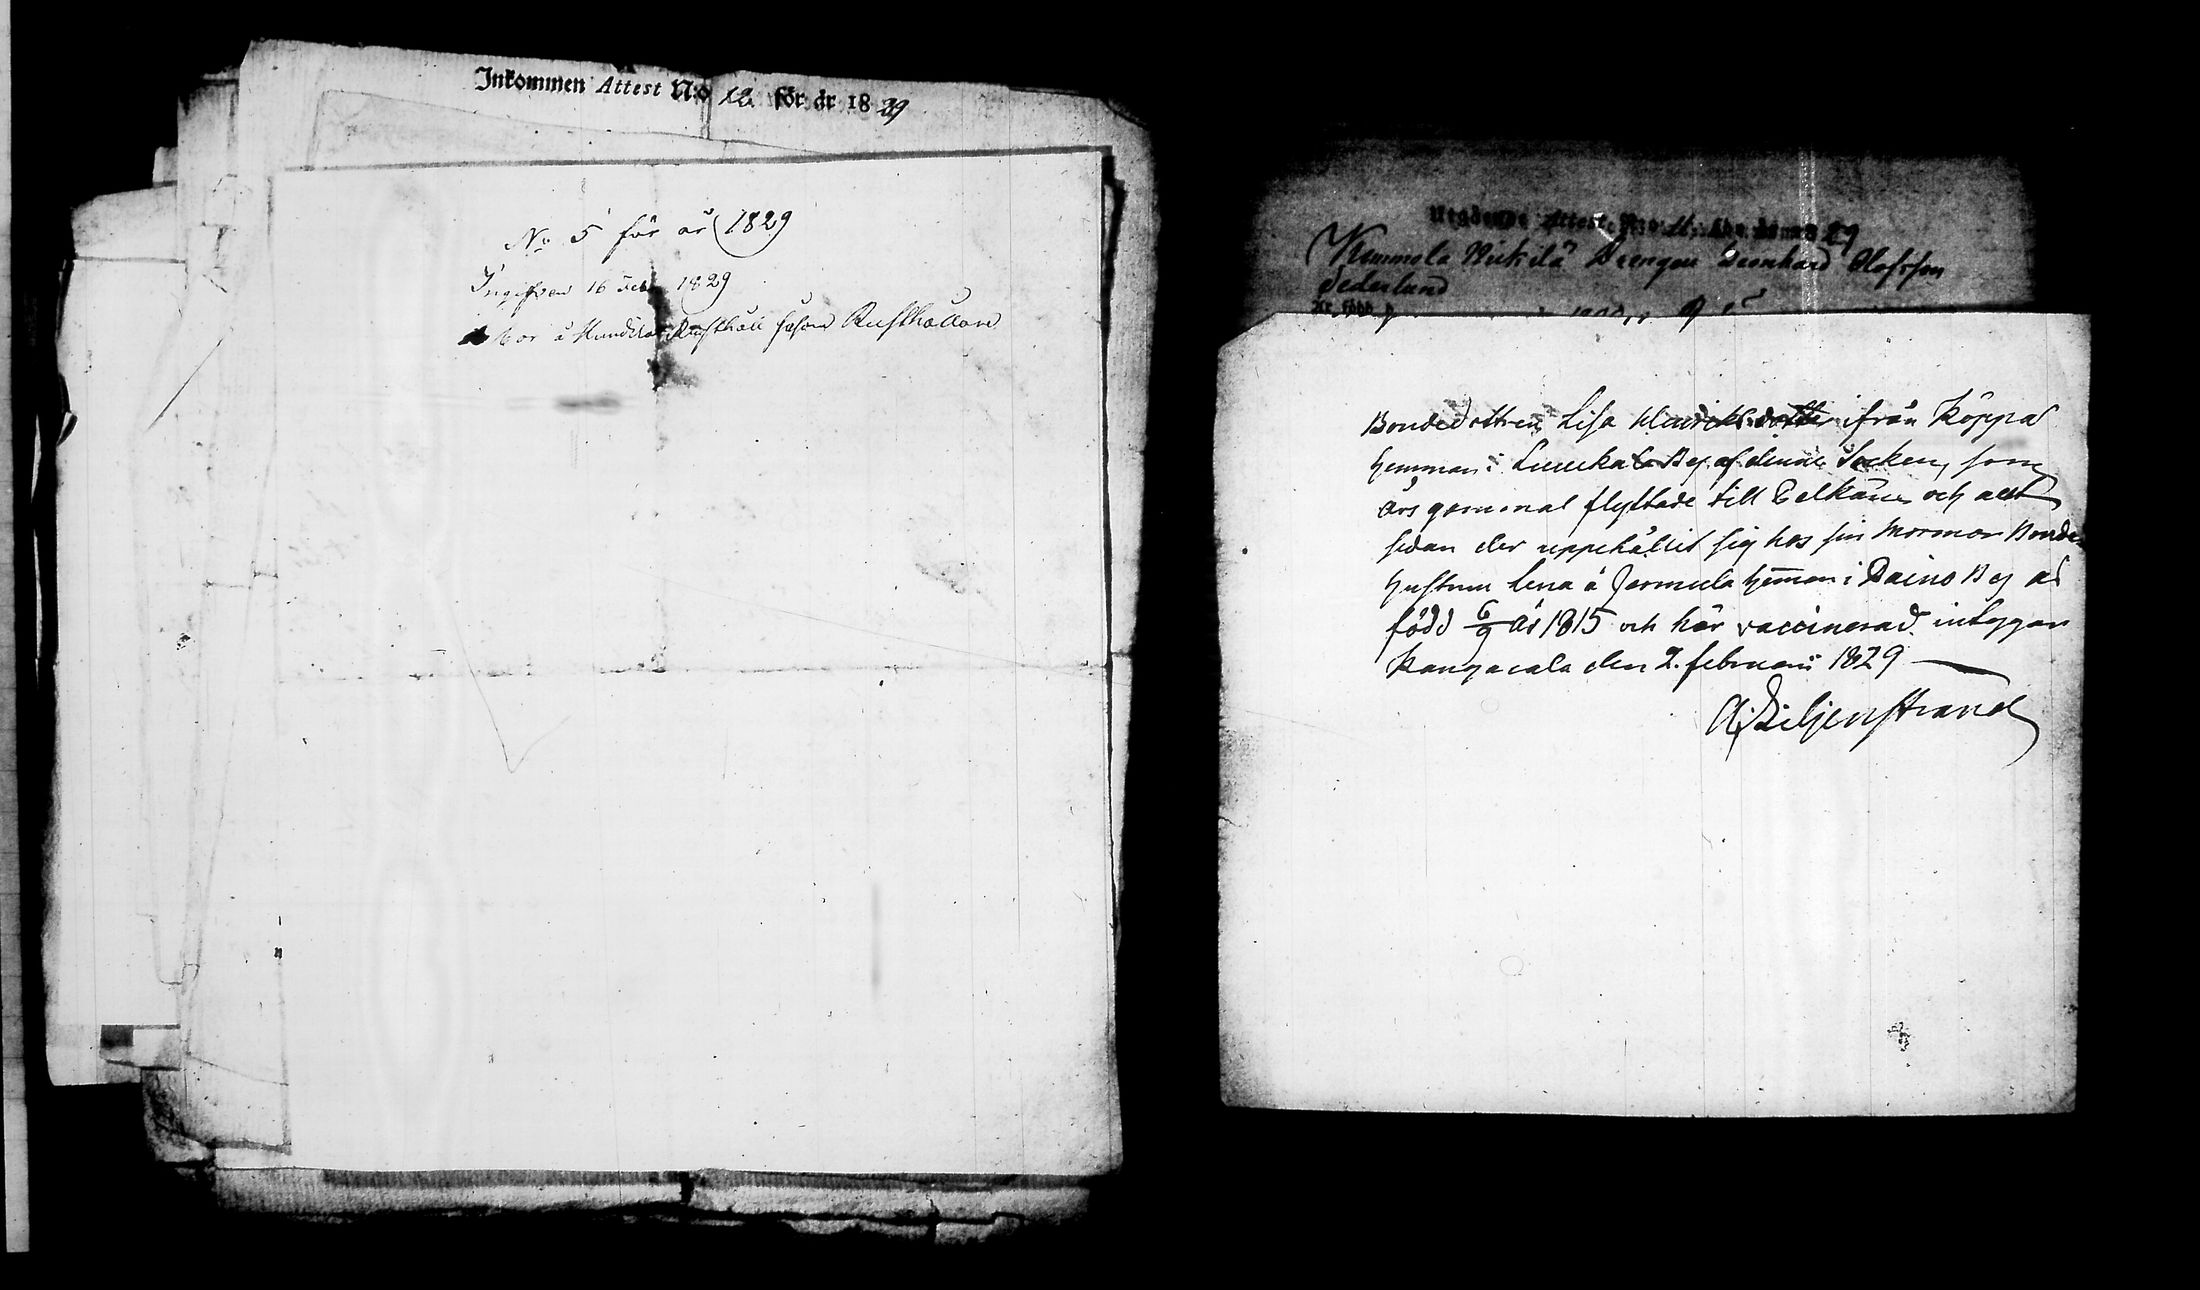 Inkommen Attest N:o 12. för år 1829
No 5 för år 1829
Ingifven 16 Feb. 1829
Bor å Rusthåll såsom Rusthållare
Utgående Attest N:o 11. för år 1829
Kummola Drengen Leonhard Olofsson
Sederlund
född
Bondedottren Lisa Henriksdotter ifrån Köppä
hemman i By af denna Socken, som
års gammal flyttade till Pelkäne och allt
sedan der uppehållit sig hos sin Mormor Bonde-
hustrun Lena å hemman i Paino By är
född 6/9 år 1815 och här vaccinerad. intygar
Kangasala den 2. februarii 1829
A. Liljenstrand